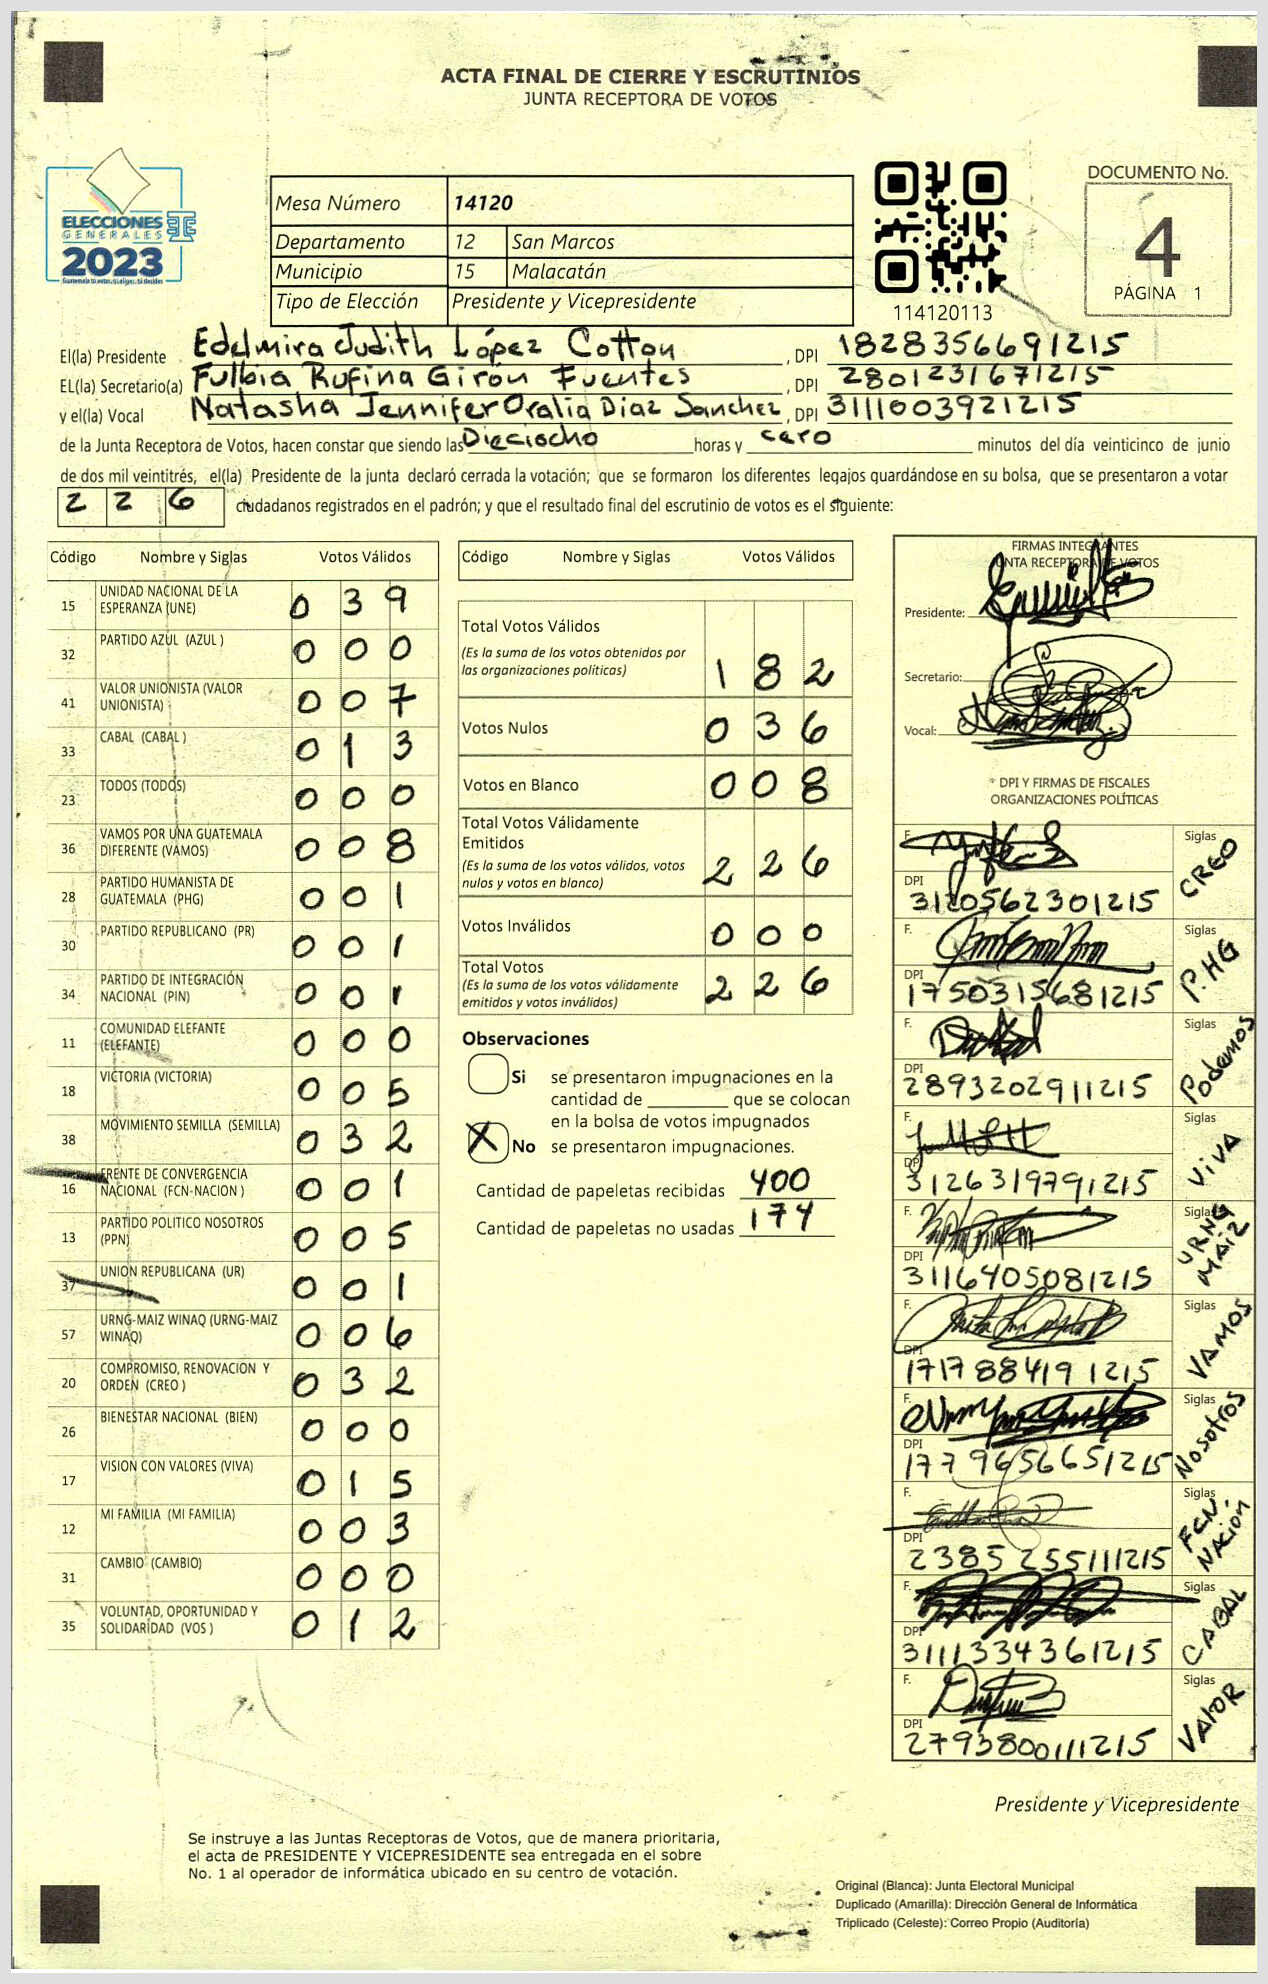 ACTA FINAL DE CIERRE Y ESCRUTINIOS
JUNTA RECEPTORA DE VOTOS
ELECCIONES
GENERALES
2023
Guatemala tu votas, tú eliges, tú decides
Mesa Número 14120
Departamento 12 San Marcos
Municipio 15 Malacatán
Tipo de Elección Presidente y Vicepresidente
114120113
DOCUMENTO No.
4
PÁGINA 1
El(la) Presidente Edelmira Judith López Cotton, DPI 1828356691215
EL(la) Secretario(a) Fulbia Rufina Girón Fuentes, DPI 2801231671215
y el(la) Vocal Natasha Jennifer Oralia Diaz Sanchez, DPI 3111003921215
de la Junta Receptora de Votos, hacen constar que siendo las Dieciocho horas y cero minutos del día veinticinco de junio
de dos mil veintitrés, el(la) Presidente de la junta declaró cerrada la votación; que se formaron los diferentes legajos guardándose en su bolsa, que se presentaron a votar
2 2 6 ciudadanos registrados en el padrón; y que el resultado final del escrutinio de votos es el siguiente:
Código Nombre y Siglas Votos Válidos
15 UNIDAD NACIONAL DE LA
ESPERANZA (UNE) 0 3 9
32 PARTIDO AZUL (AZUL ) 0 0 0
41 VALOR UNIONISTA (VALOR
UNIONISTA) 0 0 7
33 CABAL (CABAL ) 0 1 3
23 TODOS (TODOS) 0 0 0
36 VAMOS POR UNA GUATEMALA
DIFERENTE (VAMOS) 0 0 8
28 PARTIDO HUMANISTA DE
GUATEMALA (PHG) 0 0 1
30 PARTIDO REPUBLICANO (PR) 0 0 1
34 PARTIDO DE INTEGRACIÓN
NACIONAL (PIN) 0 0 1
11 COMUNIDAD ELEFANTE
(ELEFANTE) 0 0 0
18 VICTORIA (VICTORIA) 0 0 5
38 MOVIMIENTO SEMILLA (SEMILLA) 0 3 2
16 FRENTE DE CONVERGENCIA
NACIONAL (FCN-NACION ) 0 0 1
13 PARTIDO POLITICO NOSOTROS
(PPN) 0 0 5
37 UNION REPUBLICANA (UR) 0 0 1
57 URNG-MAIZ WINAQ (URNG-MAIZ
WINAQ) 0 0 6
20 COMPROMISO, RENOVACION Y
ORDEN (CREO ) 0 3 2
26 BIENESTAR NACIONAL (BIEN) 0 0 0
17 VISION CON VALORES (VIVA) 0 1 5
12 MI FAMILIA (MI FAMILIA) 0 0 3
31 CAMBIO (CAMBIO) 0 0 0
35 VOLUNTAD, OPORTUNIDAD Y
SOLIDARIDAD (VOS ) 0 1 2
Código Nombre y Siglas Votos Válidos
Total Votos Válidos
(Es la suma de los votos obtenidos por
las organizaciones políticas) 1 8 2
Votos Nulos 0 3 6
Votos en Blanco 0 0 8
Total Votos Válidamente
Emitidos
(Es la suma de los votos válidos, votos
nulos y votos en blanco) 2 2 6
Votos Inválidos 0 0 0
Total Votos
(Es la suma de los votos válidamente
emitidos y votos inválidos) 2 2 6
Observaciones
Si se presentaron impugnaciones en la
cantidad de ________ que se colocan
en la bolsa de votos impugnados
X No se presentaron impugnaciones.
Cantidad de papeletas recibidas 400
Cantidad de papeletas no usadas 174
FIRMAS INTEGRANTES
JUNTA RECEPTORA DE VOTOS
Presidente:
Secretario:
Vocal:
* DPI Y FIRMAS DE FISCALES
ORGANIZACIONES POLÍTICAS
F. Siglas CREO
DPI 3120562301215
F. Siglas P.HG
DPI 1750315681215
F. Siglas Podemos
DPI 2893202911215
F. Siglas VIVA
DPI 3126319791215
F. Siglas URNG MAIZ
DPI 3116405081215
F. Siglas VAMOS
DPI 1717884191215
F. Siglas Nosotros
DPI 1779656651215
F. Siglas FCN-NACION
DPI 2385255111215
F. Siglas CABAL
DPI 3111334361215
F. Siglas VALOR
DPI 2793800111215
Presidente y Vicepresidente
Se instruye a las Juntas Receptoras de Votos, que de manera prioritaria,
el acta de PRESIDENTE Y VICEPRESIDENTE sea entregada en el sobre
No. 1 al operador de informática ubicado en su centro de votación.
Original (Blanca): Junta Electoral Municipal
Duplicado (Amarilla): Dirección General de Informática
Triplicado (Celeste): Correo Propio (Auditoría)